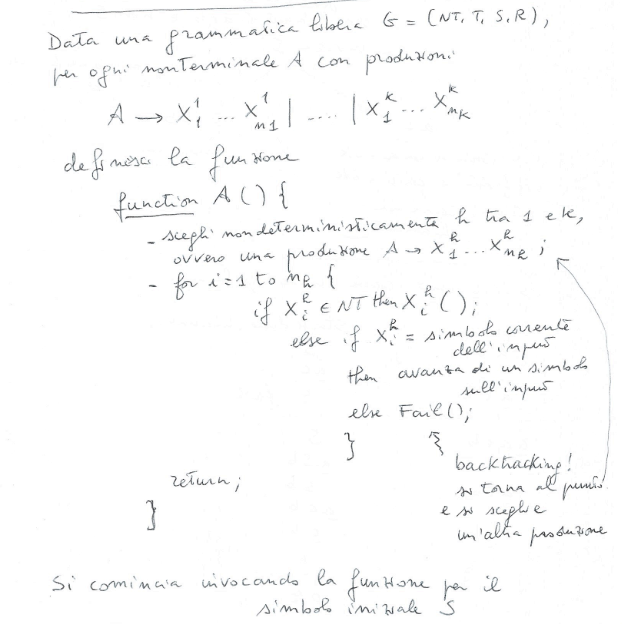 Data una grammatica libera G = (NT, T, S, R),
per ogni nonterminale A con produzioni
A → X₁¹ ... Xₙ₁¹ | .... | X₁ᵏ ... Xₙₖᵏ
definisci la funzione
function A () {
- scegli nondeterministicamente h tra 1 e k,
ovvero una produzione A → X₁ʰ ... Xₙₕʰ ;
- for i=1 to nₕ {
if Xᵢʰ ∈ NT then Xᵢʰ ();
else if Xᵢʰ = simbolo corrente
dell'input
then avanza di un simbolo
sull'input
else Fail();
}
backtracking!
si torna al punto
e si sceglie
un'altra produzione
return;
}
Si comincia invocando la funzione per il
simbolo iniziale S